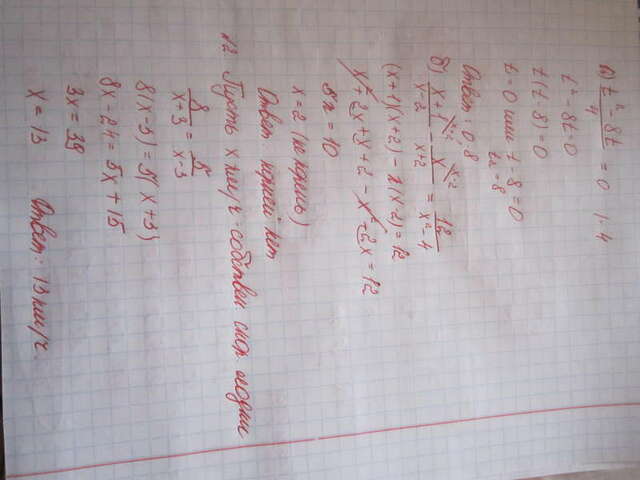 а) t² - 8t / 4 = 0 | · 4
t² - 8t = 0
t(t - 8) = 0
t = 0 или t - 8 = 0
t₂ = 8
Ответ: 0, 8
б) x+1 / x-2 - x / x+2 = 12 / x² - 4
(x+1)(x+2) - x(x-2) = 12
x² + 2x + x + 2 - x² - 2x = 12
5x = 10
x = 2 (не корень)
Ответ: корней нет
№2. Пусть x км/ч - собствен. скор. лодки
8 / x+3 = 5 / x-3
8(x-3) = 5(x+3)
8x - 24 = 5x + 15
3x = 39
x = 13 Ответ: 13 км/ч.